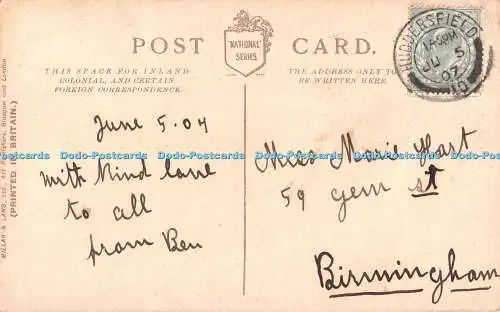 POST CARD.
"NATIONAL"
SERIES.
THIS SPACE FOR INLAND
COLONIAL, AND CERTAIN
FOREIGN CORRESPONDENCE.
THE ADDRESS ONLY TO
BE WRITTEN HERE.
HUDDERSFIELD
JU 5
07
June 5.07
with kind love
to all
from Ben
Miss Marie Hast
59 Gem st
Birmingham
MILLAR & LANG, LTD., Art Publishers, Glasgow and London
(PRINTED IN BRITAIN.)
Dodo-Postcards Dodo-Postcards Dodo-Postcards Dodo-Postcards Dodo-Postcards Dodo-Postcards